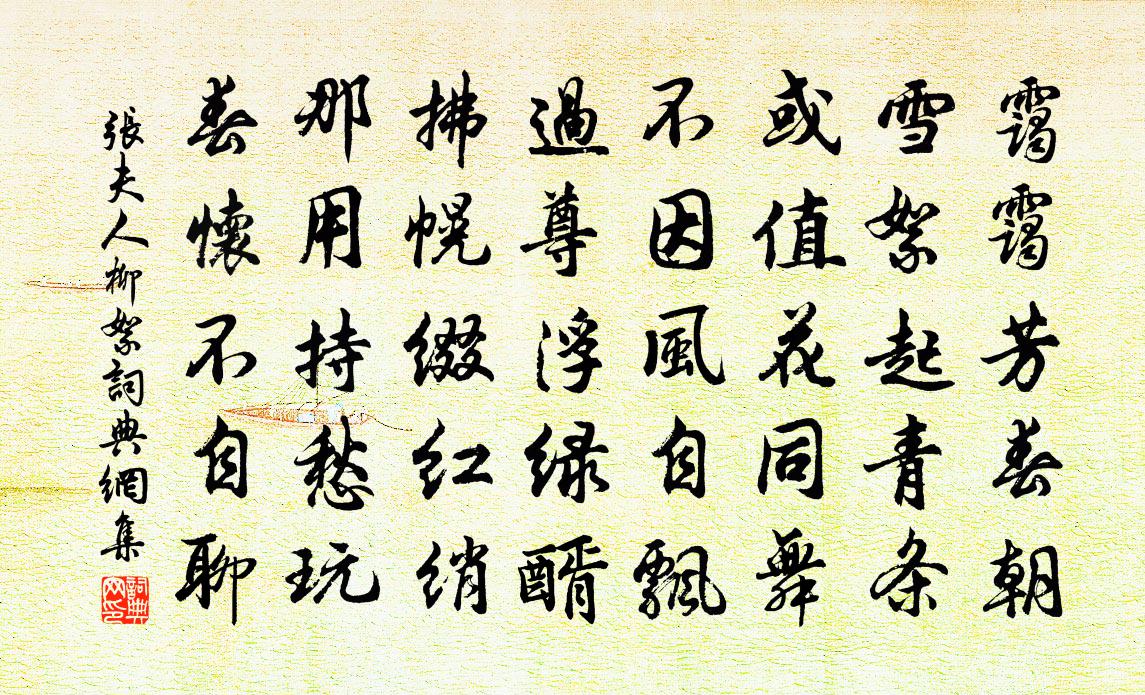 靄靄芳春朝
雪絮起青条
或值花同舞
不因風自飄
過尊浮绿醑
拂幌缀红绡
那用持愁玩
春懷不自聊
張夫人柳絮詞典網集
詞典
网印